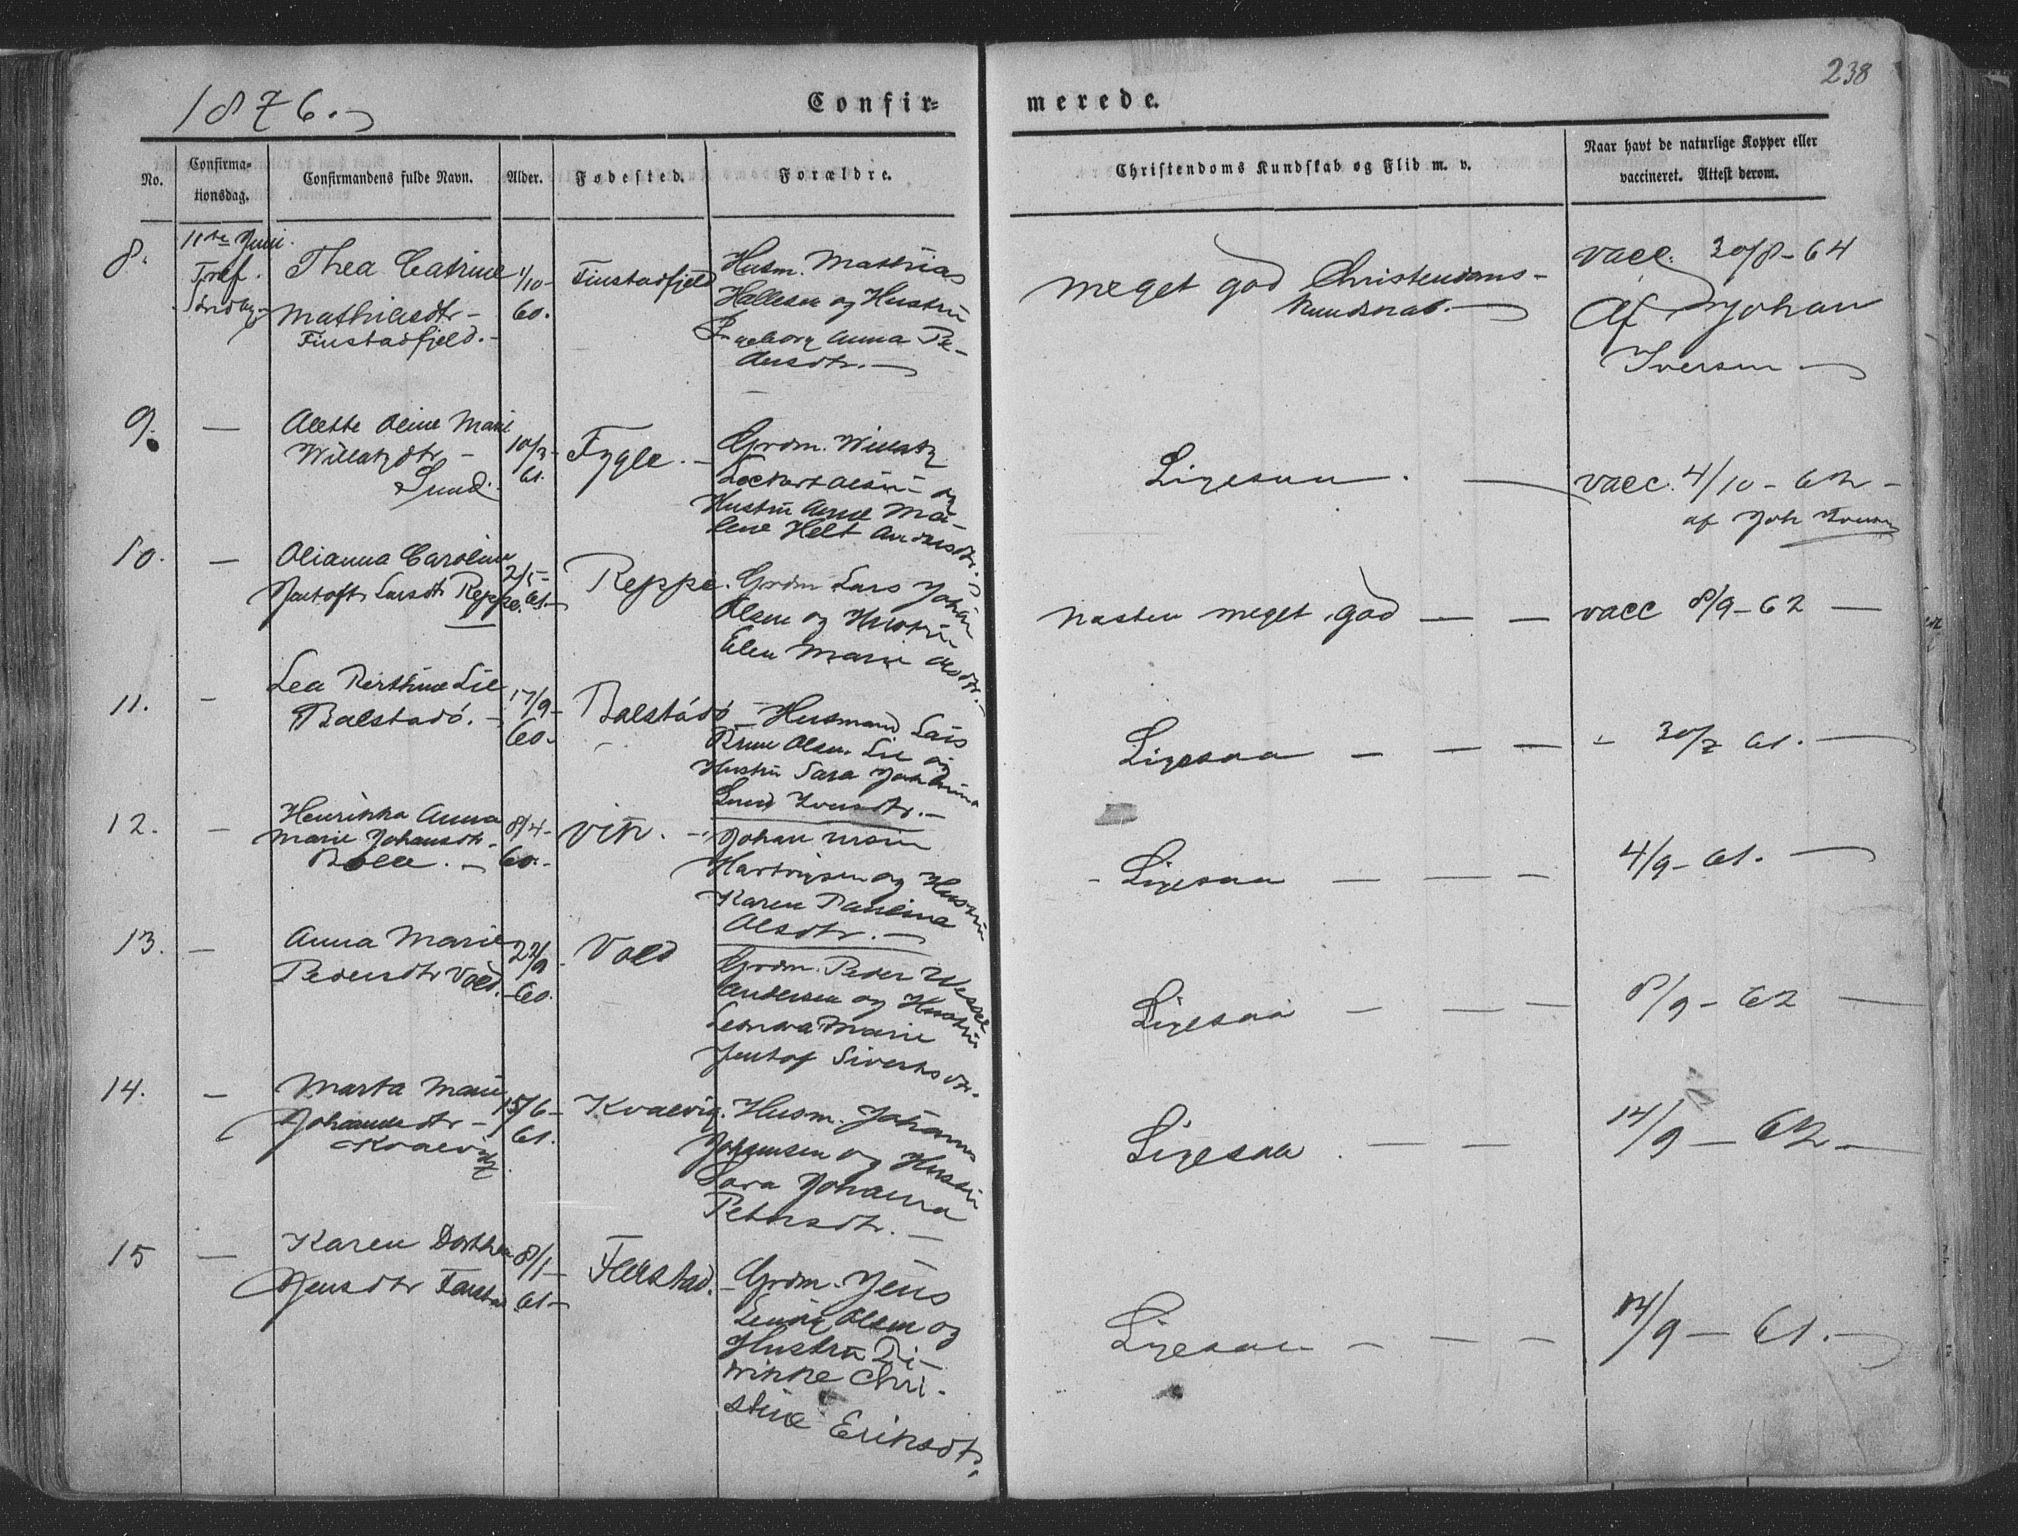 238
1876.
Confir=
merede.
No.
Confirma-
tionsdag.
Confirmandens fulde Navn.
Alder.
Fødested.
Forældre.
Christendoms Kundskab og Flid m. v.
Naar havt de naturlige Kopper eller
vaccineret. Attest derom.
8.
11te Juni.
Tref.
Søndag
Thea Catrine
Mathiasdtr -
Finstadfjeld. -
1/10-
60.
Finstadfjeld
Husm. Mathias
Hallesen og Hustru
Ingeborg Anna Pe-
dersdtr. -
meget god Christendoms-
kundskab. -
vacc. 30/8-64
Af Johan
Iversen -
9.
-
Alette Oline Marie
Willatzdtr -
Sund.
10/3-
61.
Fygle. -
Grdm. Willatz
og
Hustru Anne Ma-
lene Helt Andersdtr.
Ligesaa. -
vacc. 4/10-62-
af Joh Iversen
10.
-
Olianna Caroline
Jentoft Larsdtr Reppe.
2/5-
61.-
Reppe.
Grdm Lars Johan
Olsen og Hustru
Elen Marie Olsdtr.
næsten meget god - -
vacc 8/9-62 -
11.
-
Lea Berthine Lie
Balstadø. -
17/9-
60.
Balstadø
- Husmand Lars
Brun Olsen Lie og
Hustru Sara Johanna
Lund Iversdtr. -
Ligesaa - - -
- 30/7 61. -
12.
-
Henrikka Anna
Marie Johansdtr.
Bolle. -
8/4-
60.-
Vik. -
Johan
Hartvigsen og Hustru
Karen Paulina
Olsdtr. -
- Ligesaa - - -
4/9-61. -
13.
-
Anna Marie
Pedersdtr Vold.
22/9
-60.
Vold
Grdm. Peder Wessel
Andersen og Hustru
Leonora Marie
Jentof Sivertsdtr.
Ligesaa - - -
8/9-62 -
14.
-
Marta Marie
Johansdtr -
Kvalvig
15/6-
61.
Kvalvig.
Husm. Johan
Johansen og Hustru
Sara Johanna
Petersdtr. -
Ligesaa. - - -
14/9-62-
15
-
Karen Dorthea
Jensdtr Farstad
8/1-
61-
Farstad.
- Grdm. Jens
Olsen og
Hustru Di-
rikke Chri-
stine Eriksdtr.
Ligesaa - - - -
14/9-61. -